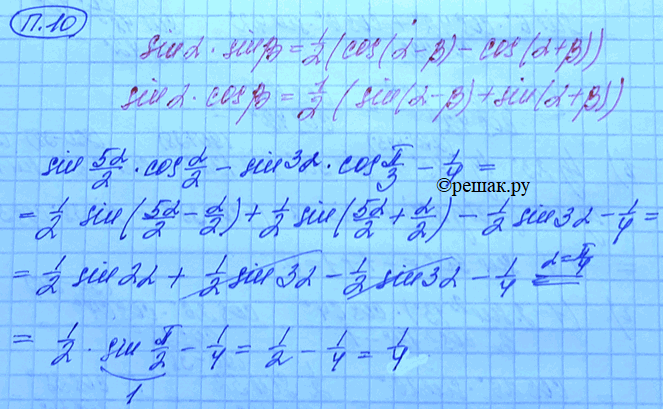 П.10
sin α · sin β = 1/2 (cos(α - β) - cos(α + β))
sin α · cos β = 1/2 (sin(α - β) + sin(α + β))
sin 5α/2 · cos α/2 - sin 3α · cos π/3 - 1/4 =
©решак.ру
= 1/2 sin(5α/2 - α/2) + 1/2 sin(5α/2 + α/2) - 1/2 sin 3α - 1/4 =
= 1/2 sin 2α + 1/2 sin 3α - 1/2 sin 3α - 1/4 = α = π/4
= 1/2 · sin π/2 - 1/4 = 1/2 - 1/4 = 1/4
1